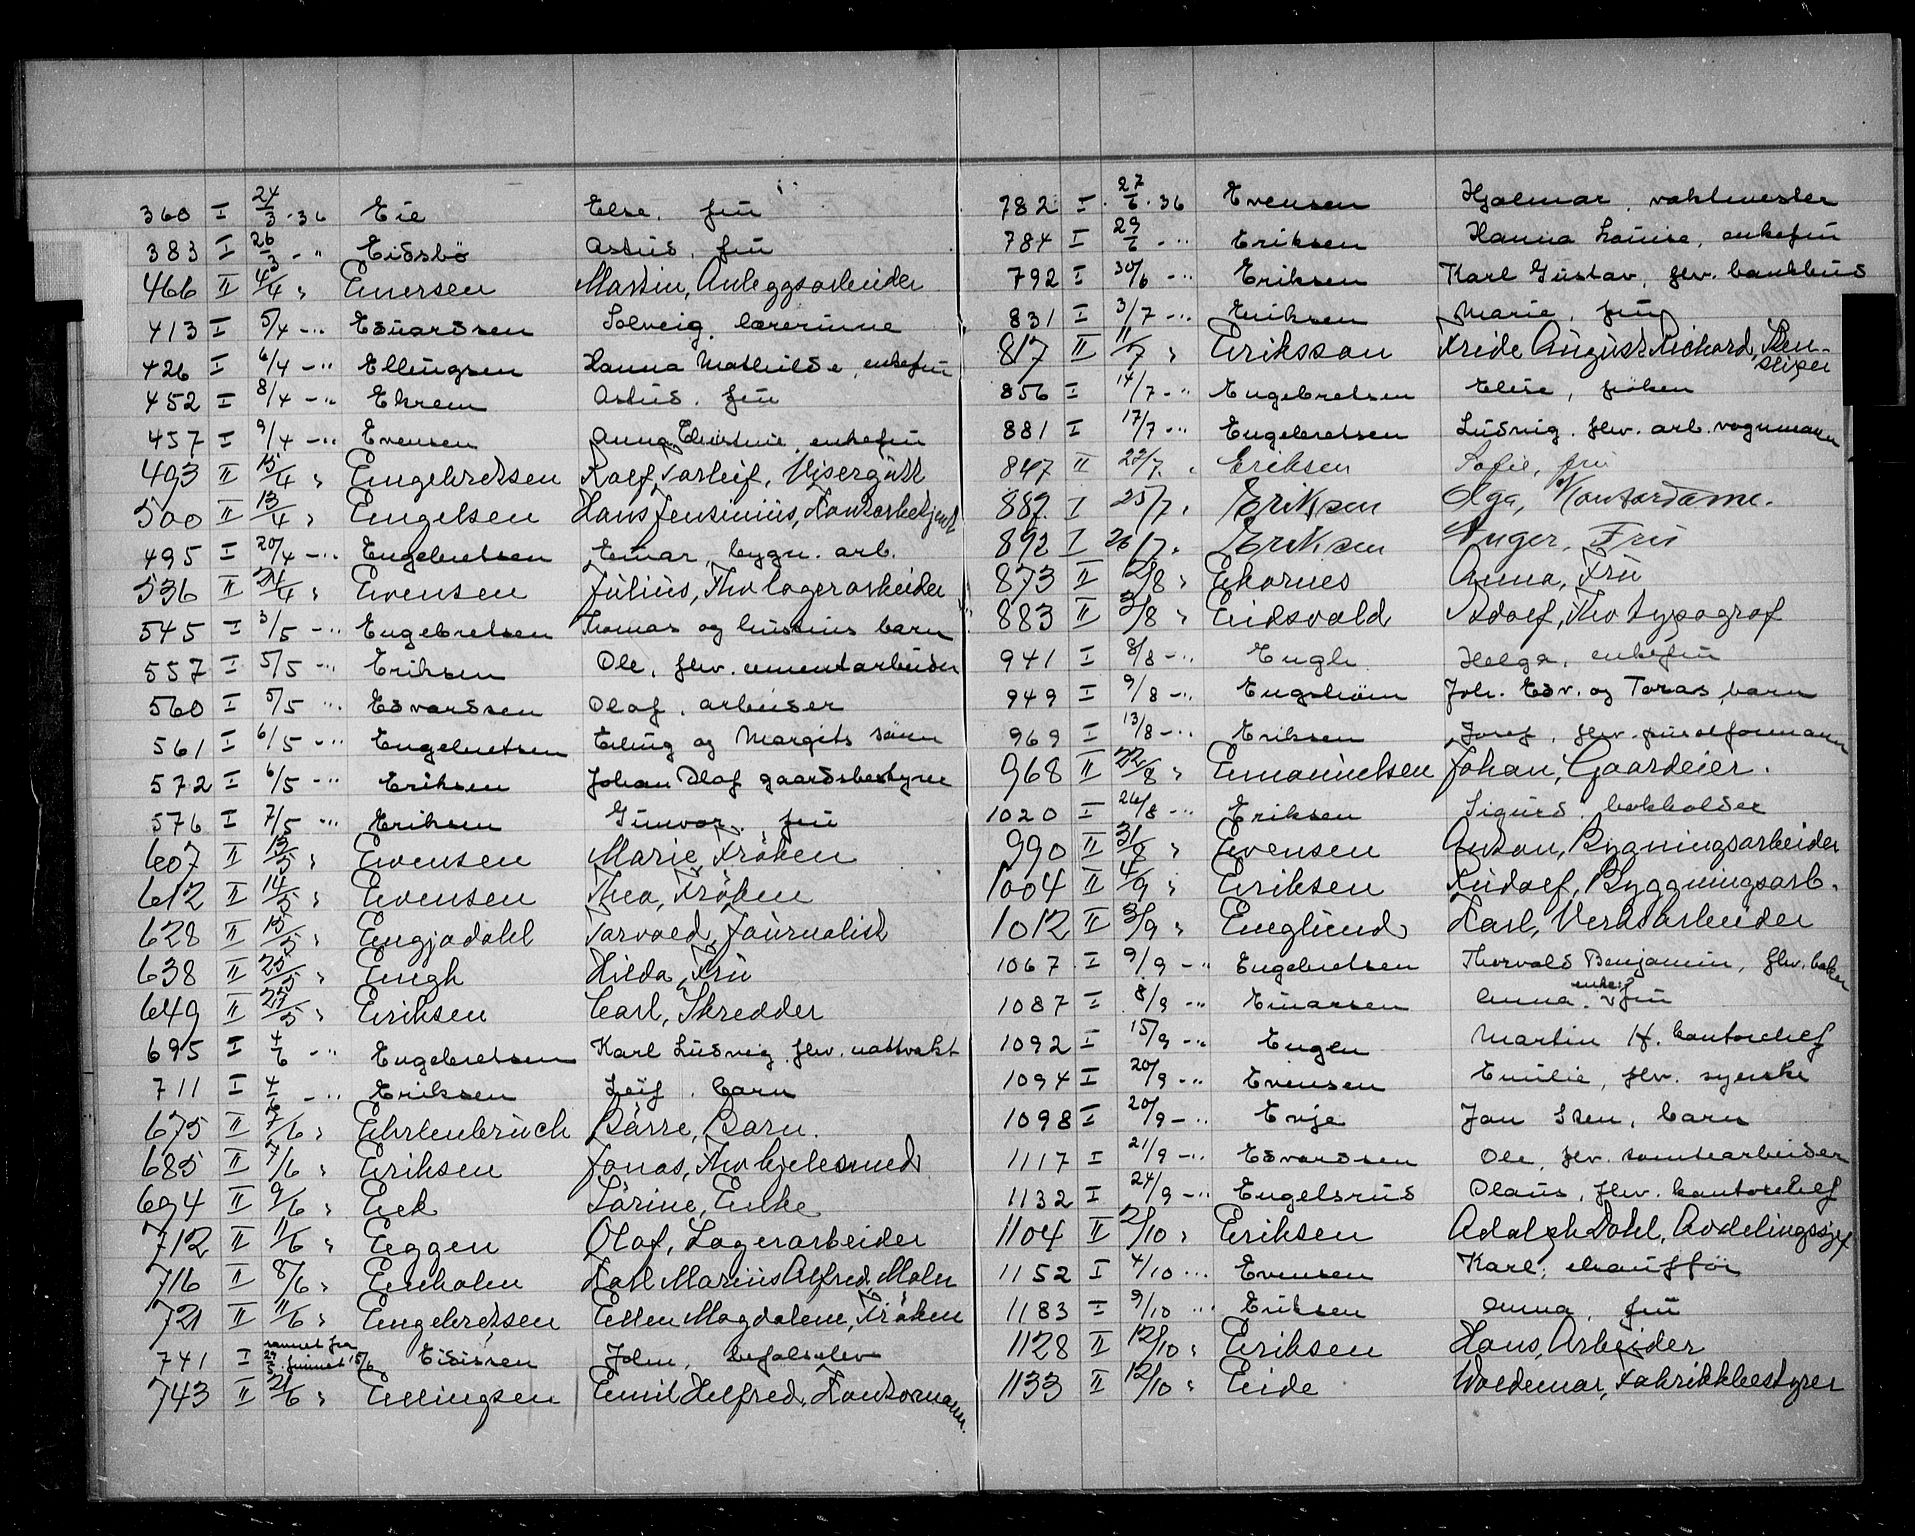 360 I 24/3.36 Eie Else. fru
383 I 26/3 - " Eidsbø Astrid. fru
466 II 4/4 " Einersen Martin, Anleggsarbeider
413 I 5/4 - " Edvardsen Solveig, lærerinne
426 I 6/4 - " Ellingsen Hanna Mathilde, enkefru
452 I 8/4 - " Ekrem Astrid. fru
457 I 9/4 - " Evensen Anna Christine, enkefru
493 II 15/4 " Engebretsen Rolf Torleif, Visergutt
500 II 13/4 " Engelsen Hans Jensinius, Kontorbetjent
495 I 20/4 - " Engebretsen Einar, bygn. arb.
536 II 24/4 " Evensen Julius, Fhv lagerarbeider
545 I 3/5 - " Engebretsen Thomas og hustrus barn
557 I 5/5 - " Eriksen Ole, fhv. cementarbeider
560 I 5/5 " Edvardsen Olaf. arbeider
561 I 6/5 - " Engebretsen Erling og Margits sønn
572 I 6/5 - " Eriksen Johan Olaf gaardsbestyrer
576 I 7/5 - " Eriksen Gunvor, fru
607 II 13/5 " Evensen Marie, Frøken
612 II 14/5 " Evensen Thea, Frøken
628 II 15/5 " Engjadahl Torvald, Journalist
638 II 25/5 " Engh Hilda, Fru
649 II 27/5 " Eriksen Carl, Skredder
695 I 4/6 - " Engebretsen Karl Ludvig. fhv. nattvakt
711 I 4/6 - " Eriksen Leif. barn
675 II 7/6 " Ehrlenbruch Børre, Barn.
685 II 7/6 " Eriksen Jonas, Fhv kjelesmed
694 II 9/6 " Eek Sørine, Enke
712 II 11/6 " Eggen Olaf, Lagerarbeider
716 II 8/6 " Enholm Karl Marius Alfred, Maler
721 II 11/6 " Engebretsen Ellen Magdalene, Frøken
741 I savnet fra 29/5 funnet 15/6 John, befalselev
743 II 21/6 " Ellingsen Emil Helfred, Kontormann.
782 I 27/6.36 Evensen Hjalmar, vaktmester
784 I 29/6 - " Eriksen Hanna Louise, enkefru
792 I 30/6 - " Eriksen Karl Gustav, fhv. bankbud
831 I 3/7 - " Eriksen Marie, fru
817 II 11/7 " Eriksson Fride August Richard, Stensliper
856 I 14/7 - " Engebretsen Elise, frøken
881 I 17/7 - " Engebretsen Ludvig. fhv. arb. vognmann
847 II 22/7 " Eriksen Sofie, fru
887 I 25/7 " Eriksen Olga, Kontordame.
892 I 26/7 " Eriksen Inger, Fru
873 II 2/8 " Ekornes Anna, Fru
883 II 3/8 " Eidsvold Adolf, Fhv typograf
941 I 8/8 - " Engh Helga, enkefru
949 I 9/8 - " Engstrøm Joh. Edv. og Toras barn
969 I 13/8 - " Eriksen Josef, fhv.
968 II 22/8 " Emanuelsen Johan, Gaardeier.
1020 I 26/8 - " Eriksen Sigurd. bokholder
990 II 31/8 " Evensen Anton, Bygningsarbeider
1004 II 4/9 " Eriksen Rudolf, Byggningsarb.
1012 II 3/9 " Englund Karl, Verkstarbeider
1067 I 9/9 - " Engebretsen Thorvald Benjamin, fhv. baker
1087 I 8/9 - " Einarsen Anna. enkefru
1092 I 15/9 - " Engen Martin H. kontorchef
1094 I 20/9 - " Evensen Emilie, fhv. syerske
1098 I 20/9 - " Evje Jan Sten, barn
1117 I 21/9 - " Edvardsen Ole, fhv. tomtearbeider
1132 I 24/9 - " Engelsrud Olaus, fhv. kontorchef
1104 II 2/10 " Eriksen Adolph Dahl, Avdelingssjef
1152 I 4/10 " Evensen Karl, chaufför
1183 I 9/10 " Eriksen Anna, fru
1128 II 12/10 " Eriksen Hans, Arbeider
1133 II 12/10 " Eide Woldemar, Fabrikkbestyrer